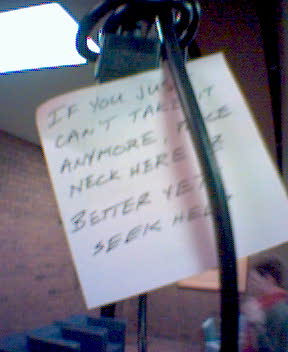 IF YOU JUST
CAN'T TAKE IT
ANYMORE, PLACE
NECK HERE OR
BETTER YET
SEEK HELP